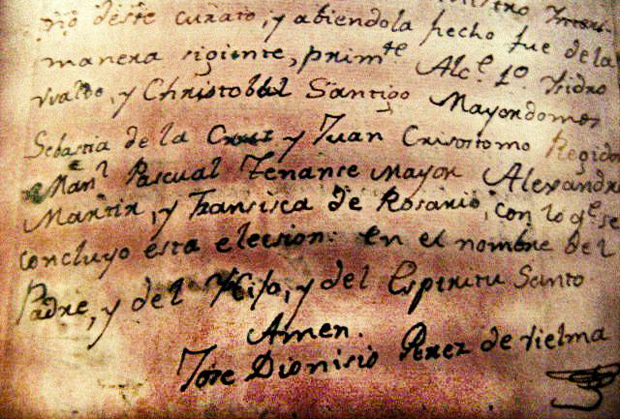 rio deste curato, y abiendola fecho fue de la
manera sigiente, primte Alce 1o Ysidro
Vvalbo, y Christobal Santigo Mayordomos
Sebastia de la Cruz y Juan Crisostomo Regidor
Manl Pascual Tenanse Mayor Alexandro
Martin, y Fransisca de Rosario, con lo qe se
concluyo esta elecsion: en el nombre del
Padre, y del Hijo, y del Espiritu Santo
Amen.
Jose Dionisio Perez de Vielma